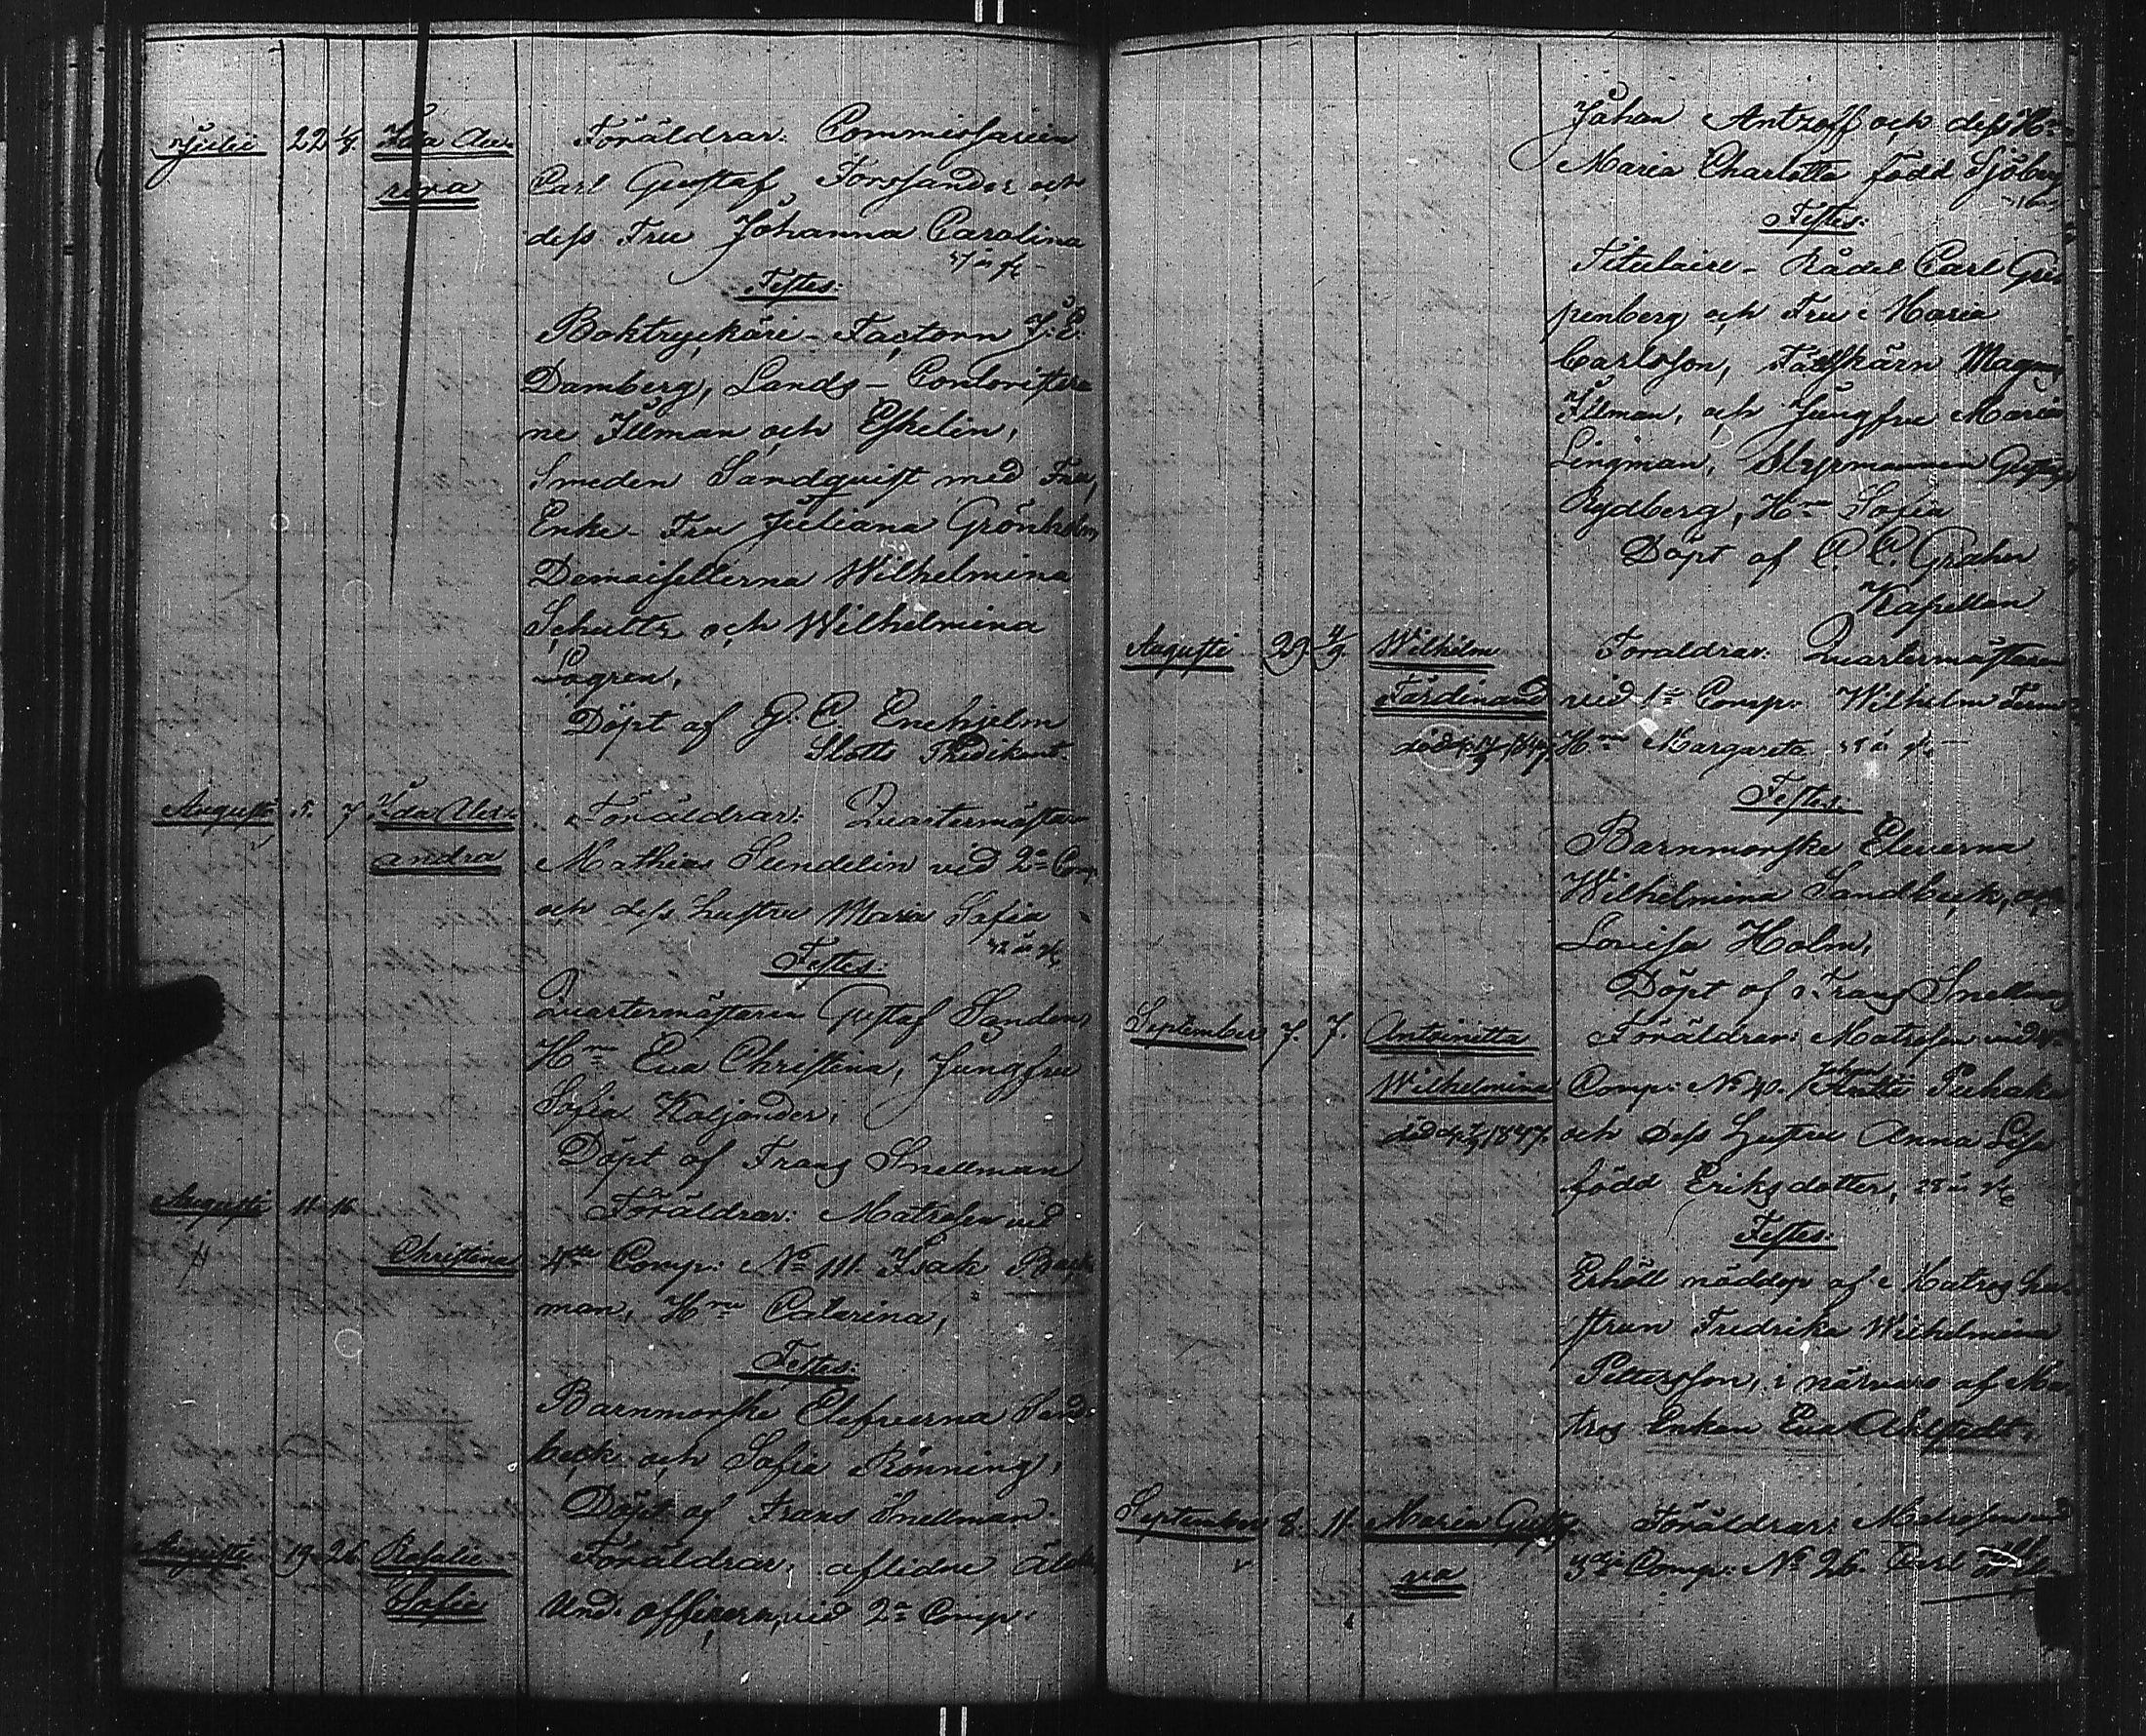 Julii 22 1/8. Ida Aurora Föräldrar: Commissarien
Carl Gustaf Forssander och
dess Fru Johanna Carolina
37 år g.
Testes:
Boktryckäri-Factorn J. E.
Damberg, Lands-Contoristerne
Illman och Eskelin,
Smeden Sandquist med Fru,
Enke-Fru Juliana Grönholm,
Demoisellerna Wilhelmina
Schultz och Wilhelmina
Lögren,
Döpt af G. C. Enehjelm
Slotts Predikant.
Augusti 5. 7 Ida Alexandra Föräldrar: Quartermästare
Mathias Sundelin vid 2a Comp.
och dess hustru Maria Sofia
Testes:
Quartermästaren Gustaf Sanden,
Hru Eva Christina, Jungfru
Sofia Kaljander,
Döpt af Frans Snellman
Augusti 11 16 Föräldrar: Matrosen vid
Christina 4de Comp: No 111. Isak Back
man, Hru Catarina,
Testes:
Barnmorske Elefverna Sand
beck och Sofia Rönning,
Döpt af Frans Snellman.
Augusti 19 26 Rosalie Föräldrar: aflidne Äldre
Sofia Und. officern vid 2a Comp.
Johan Antzoff och dess Hru
Maria Charlotta född Sjöberg
Testes:
Titulaire-Rådet Carl Gri
penberg och Fru Maria
Carlsson, Fältskärn Magnus
Illman, och Jungfru Maria
Lingman, Styrmannen Gustaf
Rydberg, Hru Sofia
Döpt af C. C. Grahn
Kapellan
Augusti 29 4/9. Wilhelm Föräldrar: Quartermästaren
Ferdinand vid 1a Comp. Wilhelm
död 1847. Hru Margareta
Testes:
Barnmorske Eleverna
Wilhelmina Sandbeck, och
Lovisa Holm,
Döpt af Frans Snellman
September 7. 7. Antoinetta Föräldrar: Matrosen vid
Wilhelmina Comp: No 40. Puhakka
död 1847. och dess Hustru Anna Lisa
född Eriksdotter, 28 år
Testes:
Erhöll nöddop af Matros hu
strun Fredrika Wilhelmina
Pettersson, i närvaro af Ma
tros Enkan Eva Ahlstedt.
September 8. 11. Maria Gusta Föräldrar: Matrosen vid
va 3dje Comp: No 26. Carl